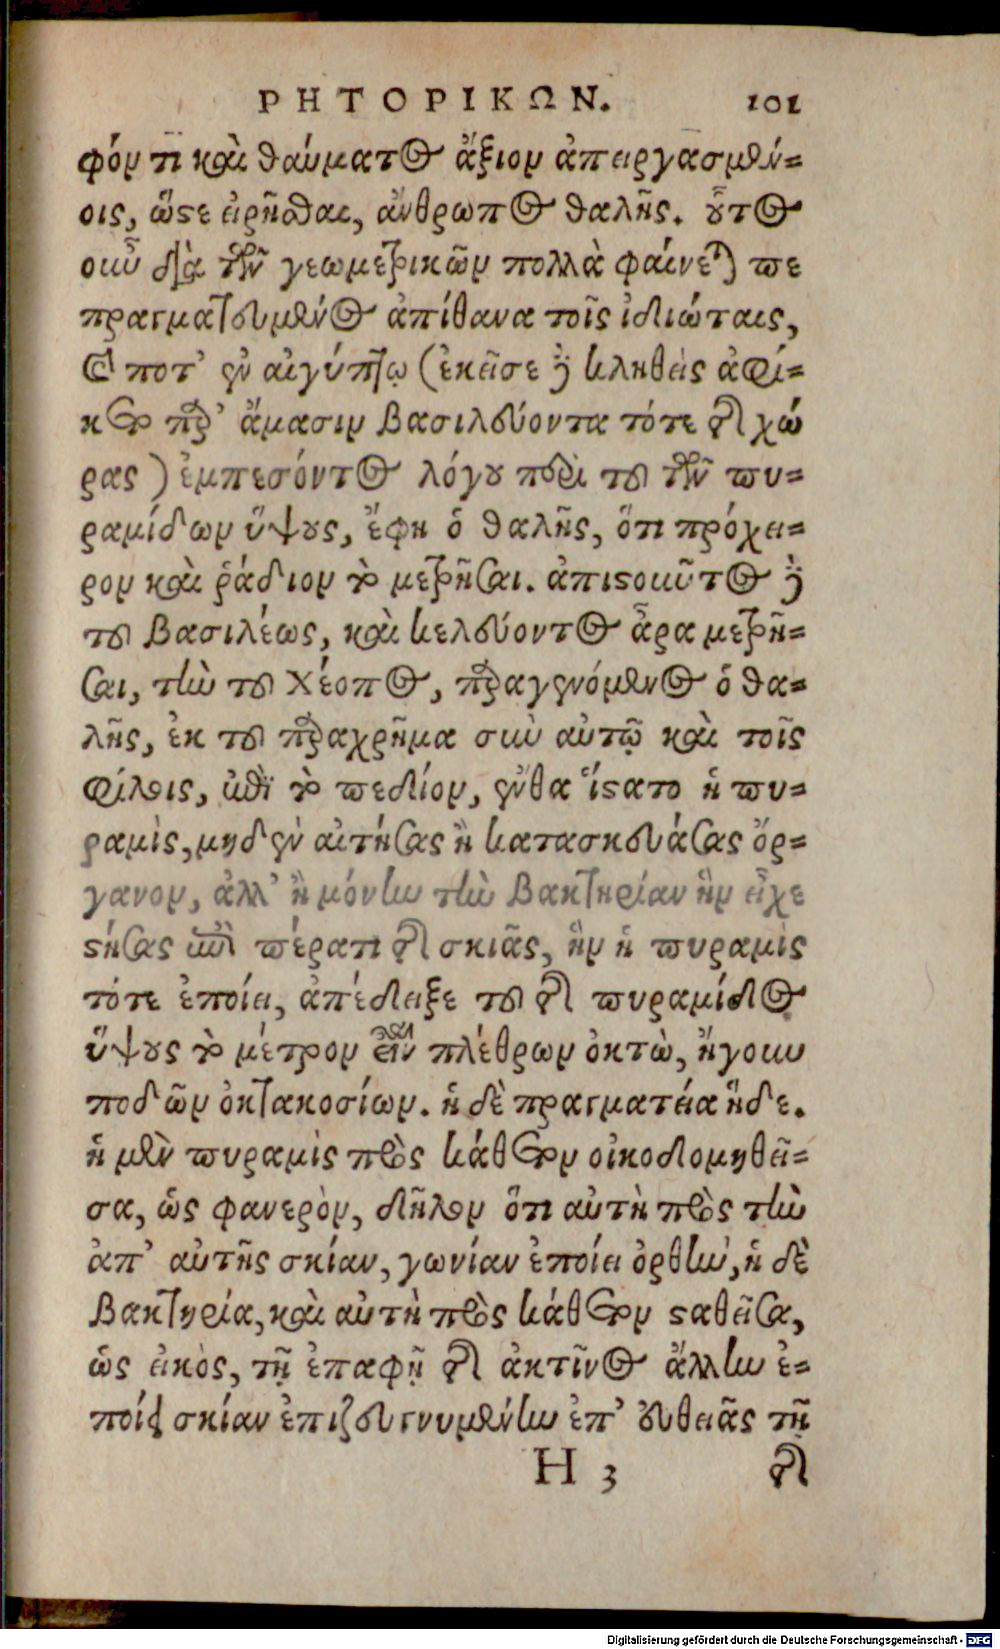 ΡΗΤΟΡΙΚΩΝ. 101
φόν τι καὶ θαύματος ἄξιον ἀπειργασμέν-
οις, ὥστε εἰρῆσθαι, ἄνθρωπος θαλῆς. οὗτος
οὖν διὰ τῶν γεωμετρικῶν πολλὰ φαίνεται πε
πραγματευμένος ἀπίθανα τοῖς ἰδιώταις,
καὶ ποτ' ἐν αἰγύπτῳ (ἐκεῖσε γὰρ κληθεὶς ἀφί-
κετο παρ' ἄμασιν βασιλεύοντα τότε τῆς χώ
ρας) ἐμπεσόντος λόγου περὶ τοῦ τῶν πυ-
ραμίδων ὕψους, ἔφη ὁ θαλῆς, ὅτι πρόχει-
ρον καὶ ῥάδιον τὸ μετρῆσαι. ἀπιστοῦντος δὲ
τοῦ βασιλέως, καὶ κελεύοντος ἆρα μετρῆ-
σαι, τὴν τοῦ Χέοπος, παραγενόμενος ὁ θα-
λῆς, ἐκ τοῦ παραχρῆμα σὺν αὐτῷ καὶ τοῖς
φίλοις, ἐπὶ τὸ πεδίον, ἔνθα ἵστατο ἡ πυ-
ραμὶς, μηδὲν αἰτήσας ἢ κατασκευάσας ὄρ-
γανον, ἀλλ' ἢ μόνην τὴν βακτηρίαν ἣν εἶχε
στήσας ἐπὶ πέρατι τῆς σκιᾶς, ἣν ἡ πυραμὶς
τότε ἐποίει, ἀπέδειξε τοῦ τῆς πυραμίδος
ὕψους τὸ μέτρον εἶναι πλέθρων ὀκτὼ, ἤγουν
ποδῶν ὀκτακοσίων. ἡ δὲ πραγματεία ἥδε.
ἡ μὲν πυραμὶς πρὸς κάθετον οἰκοδομηθεῖ-
σα, ὡς φανερὸν, δῆλον ὅτι αὐτὴ πρὸς τὴν
ἀπ' αὐτῆς σκίαν, γωνίαν ἐποίει ὀρθὴν, ἡ δὲ
βακτηρία, καὶ αὐτὴ πρὸς κάθετον σταθεῖσα,
ὡς εἰκὸς, τῇ ἐπαφῇ τῆς ἀκτῖνος ἄλλην ἐ-
ποίει σκίαν ἐπιζευγνυμένην ἐπ' εὐθείας τῇ
H 3 τῆς
Digitalisierung gefördert durch die Deutsche Forschungsgemeinschaft - DFG